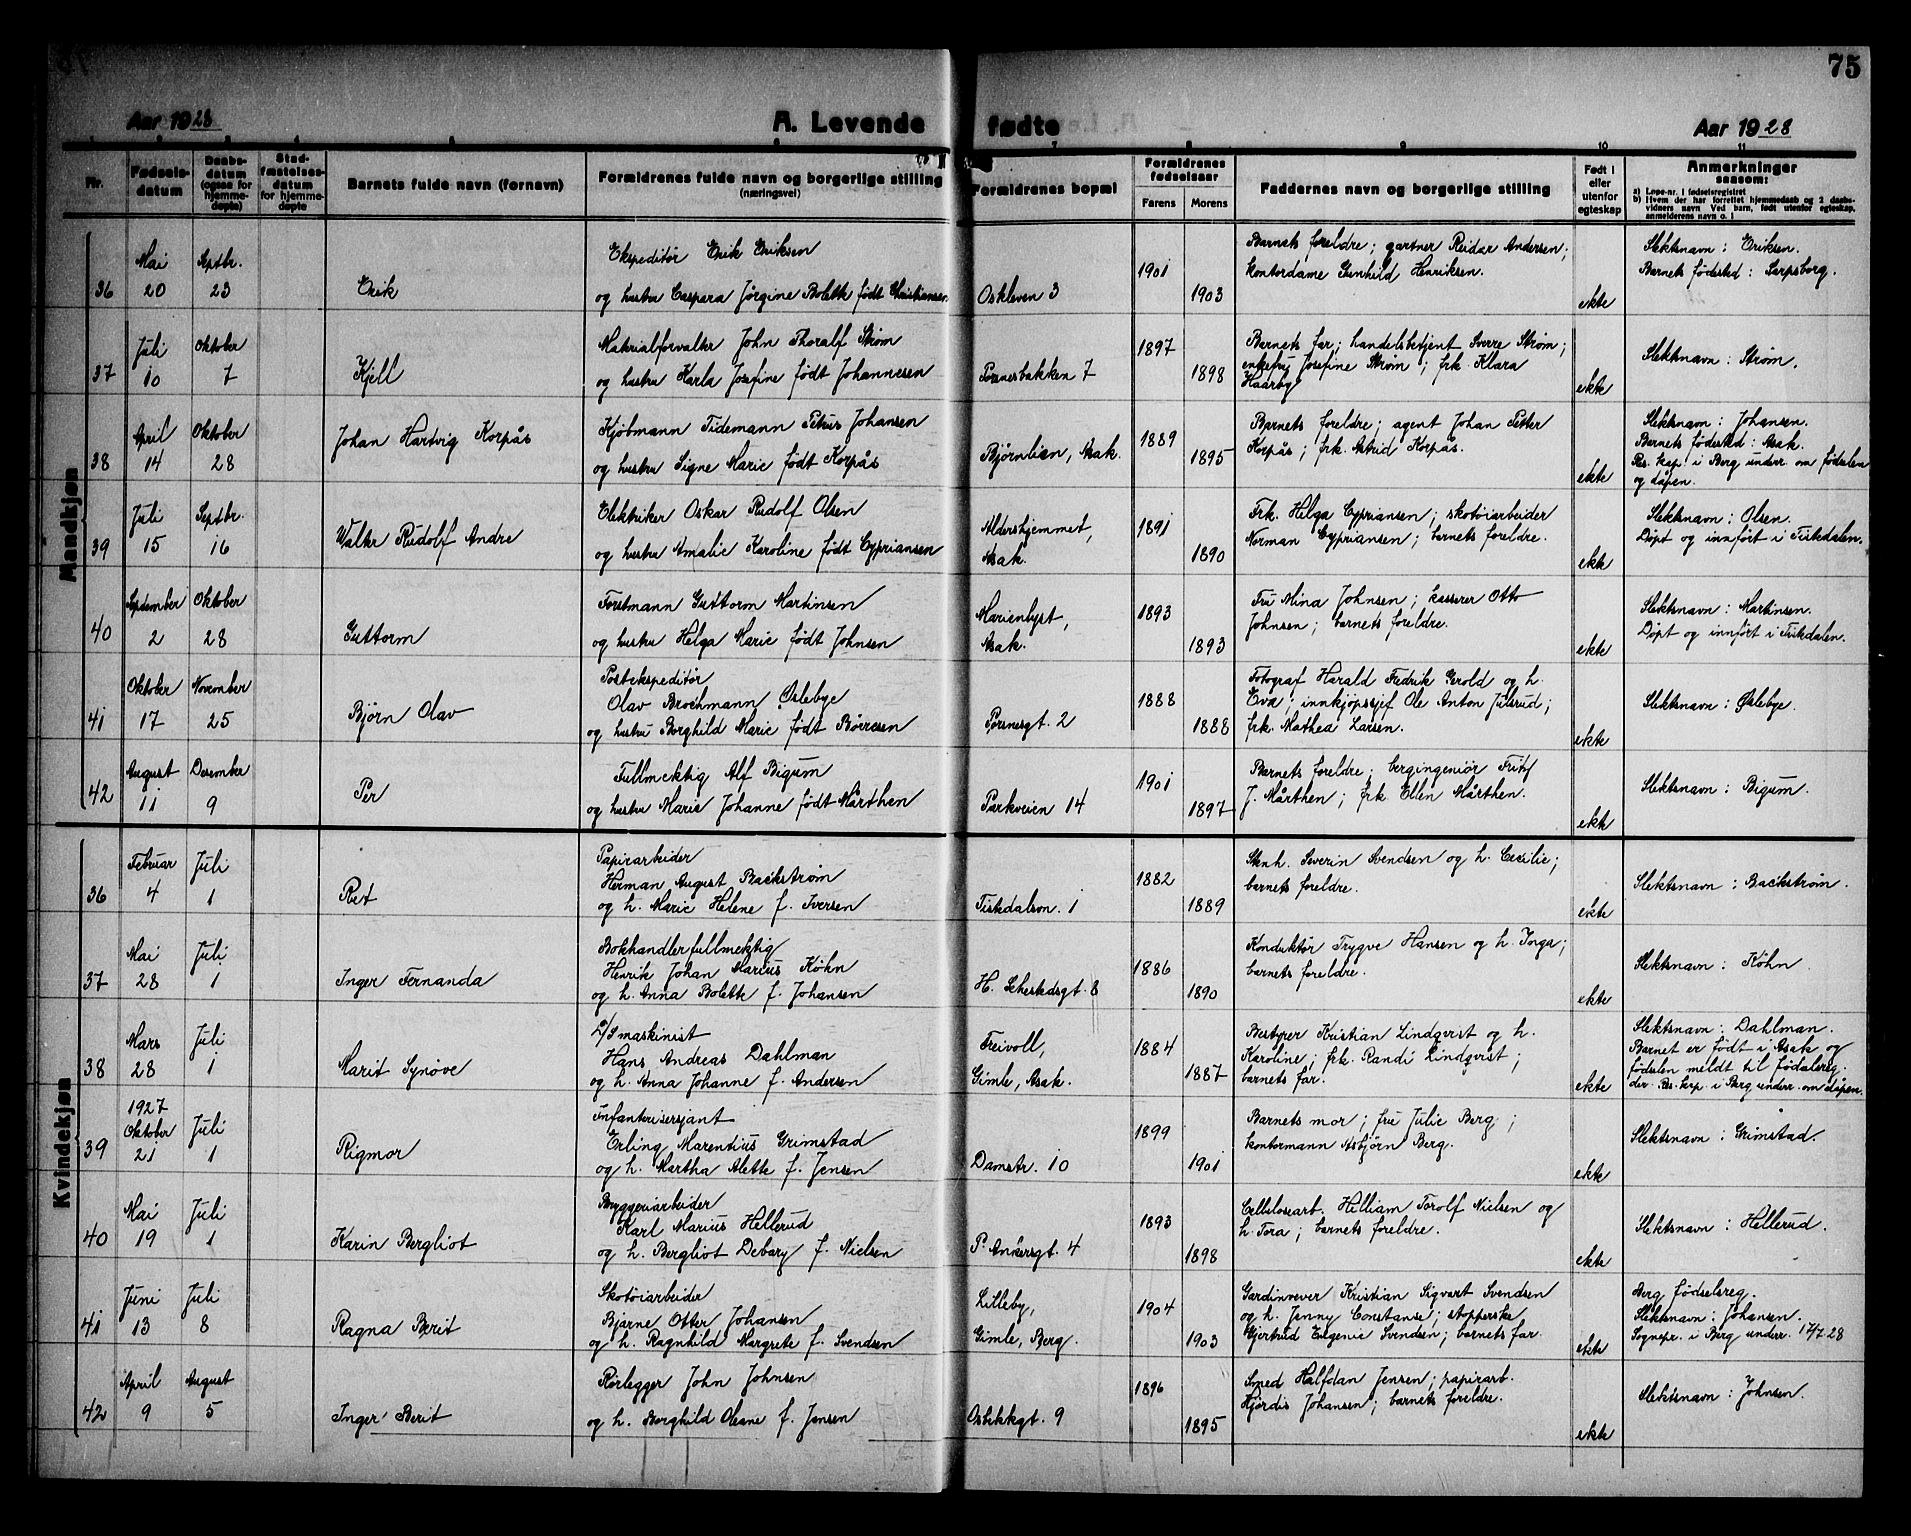 75
Aar 1928
A. Levende
fødte
Aar 1928
Nr.
Fødsels-
datum
Daabs-
datum
(ogsaa for
hjemme-
døpte)
Stad-
fæstelses-
datum
for hjemme-
døpte
Barnets fulde navn (fornavn)
Forældrenes fulde navn og borgerlige stilling
(næringsvei)
Forældrenes bopæl
Forældrenes
fødselsaar
Farens
Morens
Faddernes navn og borgerlige stilling
Født i
eller
utenfor
egteskap
Anmerkninger
saasom:
a) Løpe-nr. i fødselsregistret
b) Hvem der har forrettet hjemmedaab og 2 daabs-
vidners navn Ved barn, født utenfor egteskap,
anmelderens navn o. l
Mandkjøn
36
Mai
20
Septbr.
23
Erik
Ekspeditör Erik Eriksen
og hustru Caspara Jörgine Bolette født Christiansen
Oskleven 3
1901
1903
Barnets foreldre; gartner Reidar Andersen;
kontordame Gunhild Henriksen.
ekte
Slektsnavn: Eriksen.
Barnets fødested: Sarpsborg.
37
Juli
10
Oktober
7
Kjell
Materialforvalter John Thoralf Strøm
og hustru Karla Josefine født Johannesen
Porsnesbakken 7
1897
1898
Barnets far; handelsbetjent Sverre Strøm;
enkefru Josefine Strøm; frk. Klara
Haarby
ekte
Slektsnavn: Strøm.
38
April
14
Oktober
28
Johan Hartvig Korpås
Kjøbmann Tidemann Petrus Johansen
og hustru Signe Marie født Korpås
Bjørnlien, Asak.
1889
1895
Barnets foreldre; agent Johan Petter
Korpås; frk. Astrid Korpås.
ekte
Slektsnavn: Johansen.
Barnets fødested: Asak.
Res. kap. i Berg underr. om fødselen
og dåpen.
39
Juli
15
Septbr.
16
Walter Rudolf Andre
Elektriker Oskar Rudolf Olsen
og hustru Amalie Karoline født Cypriansen
Aldershjemmet,
Asak.
1891
1890
Frk. Helga Cypriansen; skotøiarbeider
Norman Cypriansen; barnets foreldre.
ekte
Slektsnavn: Olsen.
Døpt og innført i Tistedalen.
40
September
2
Oktober
28
Guttorm
Forstmann Guttorm Martinsen
og hustru Helga Marie født Johnsen
Marienlyst,
Asak.
1893
1893
Fru Mina Johnsen; kasserer Otto
Johnsen; barnets foreldre.
ekte
Slektsnavn: Martinsen.
Døpt og innført i Tistedalen.
41
Oktober
17
November
25
Bjørn Olav
Postekspeditör
Olav Brochmann Øslebye
og hustru Borghild Marie født Børresen
Porsnesgt. 2
1888
1888
Fotograf Harald Fredrik Gerold og h.
Eva; innkjøpssjef Ole Anton Julsrud;
frk. Mathea Larsen.
ekte
Slektsnavn: Øslebye.
42
August
11
Desember
9
Per
Fullmektig Alf Bigum
og hustru Marie Johanne født Mårthen
Parkveien 14
1901
1897
Barnets foreldre; bergingeniör Fritjof
J. Mårthen; frk. Ellen Mårthen.
ekte
Slektsnavn: Bigum.
Kvindekjøn
36
Februar
4
Juli
1
Papirarbeider
Herman August Backstrøm
og h. Marie Helene f. Iversen
1
1882
1889
Stenh. Severin Svendsen og h. Cecilie;
barnets foreldre.
ekte
Slektsnavn: Backstrøm.
37
Mai
28
Juli
1
Inger Fernanda
Bokhandlerfullmektig
Henrik Johan Marius Køhn
og h. Anna Bolette f. Johansen
H. Sehestedsgt. 8
1886
1890
Konduktør Trygve Hansen og h. Inga;
barnets foreldre.
ekte
Slektsnavn: Køhn
38
Mars
28
Juli
1
Marit Synøve
D/S maskinist
Hans Andreas Dahlman
og h. Anna Johanne f. Andersen
Freivoll,
Gimle, Asak.
1884
1887
Bestyrer Kristian Lindqvist og h.
Karoline; frk. Randi Lindqvist;
barnets far.
ekte
Slektsnavn: Dahlman.
Barnet er født i Asak og
fødselen meldt til fødselsreg.
der. Res. kap. i Berg underr. om dåpen.
39
1927
Oktober
21
Juli
1
Rigmor
Infanterisersjant
Erling Marentius Grimstad
og h. Martha Alette f. Jensen
Damstr. 10
1899
1901
Barnets mor; fru Julie Berg;
kontormann Asbjørn Berg.
ekte
Slektsnavn: Grimstad.
40
Mai
19
Juli
1
Karin Bergliot
Bryggeriarbeider
Karl Marius Hellerud
og h. Bergliot Debary f. Nielsen
P. Ankersgt. 4
1893
1898
Cellulosearb. Hilliam Torolf Nielsen og
h. Tora; barnets foreldre.
ekte
Slektsnavn: Hellerud.
41
Juni
13
Juli
8
Ragna Berit
Skotøiarbeider
Bjarne Otter Johansen
og h. Ragnhild Margrete f. Svendsen
Lilleby,
Gimle, Berg.
1904
1903
Gardinvever Kristian Sigvart Svendsen
og h. Jenny Constanse; stopperske
Gjertrud Eugenie Svendsen; barnets far.
ekte
Berg fødselsreg.
Slektsnavn: Johansen.
Sognepr. i Berg underr. 17/7 28
42
April
9
August
5
Inger Berit
Rørlegger John Johnsen
og h. Borghild Oleane f. Jensen
Osbekkgt. 9
1896
1895
Smed Halfdan Jensen; papirarb.
Hjördis Johansen; barnets foreldre.
ekte
Slektsnavn: Johnsen.